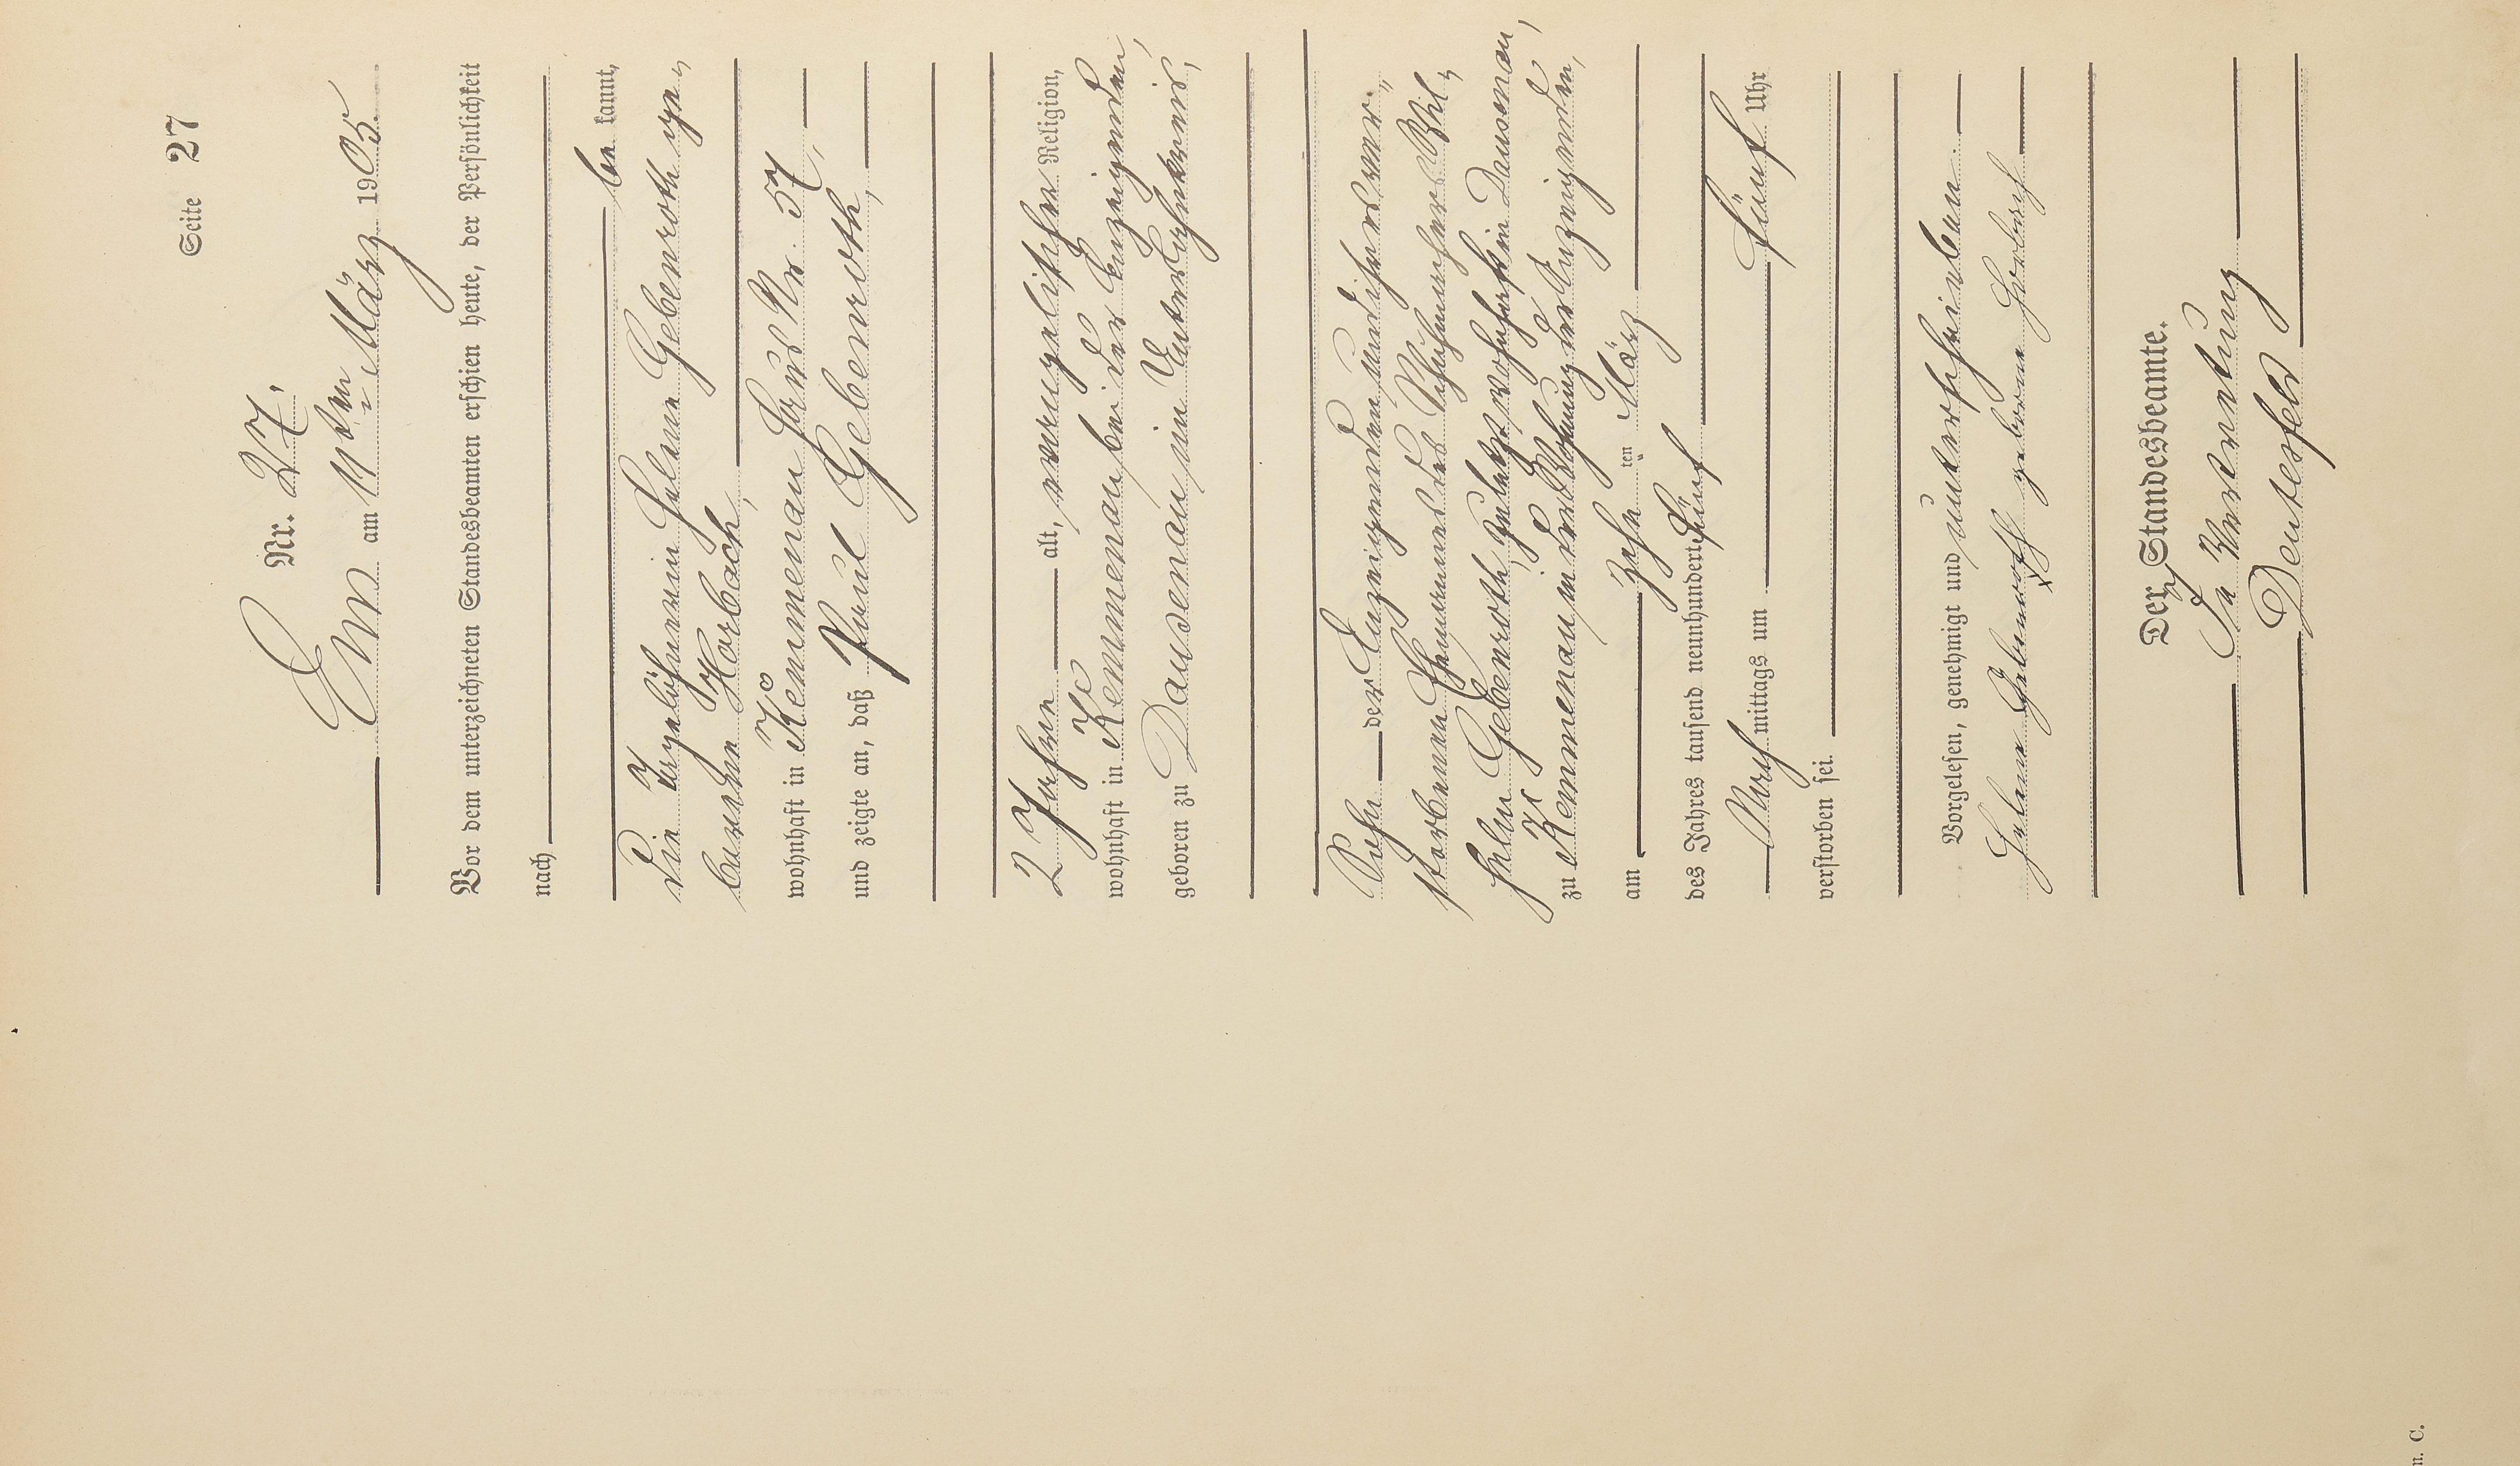 Seite 27
Nr. 27.
Ems am 11ten März 1905.
Vor dem unterzeichneten Standesbeamten erschien heute, der Persönlichkeit
nach
be kannt,
die Tagelöhnerin Helene Gebenroth ge-
borene Horbach,
wohnhaft in Kemmenau Haus Nr. 57,
und zeigte an, daß Paul Gebenroth,
2 Jahre alt, evangelischer Religion,
wohnhaft in Kemmenau bei der Anzeigenden,
geboren zu Dausenau im Unterlahnkreis,
Sohn der Anzeigenden und ihres ver-
storbenen Ehemannes des Wil-
helm Gebenroth, zuletzt wohnhaft in Dausenau,
zu Kemmenau in der Wohnung der Anzeigenden,
am zehn ten März
des Jahres tausend neunhundert fünf
Nach mittags um fünf Uhr
verstorben sei.
Vorgelesen, genehmigt und unterschrieben
Helene Gebenroth geborene Horbach
Der Standesbeamte.
In Vertretung
Deutesfeld
n. C.